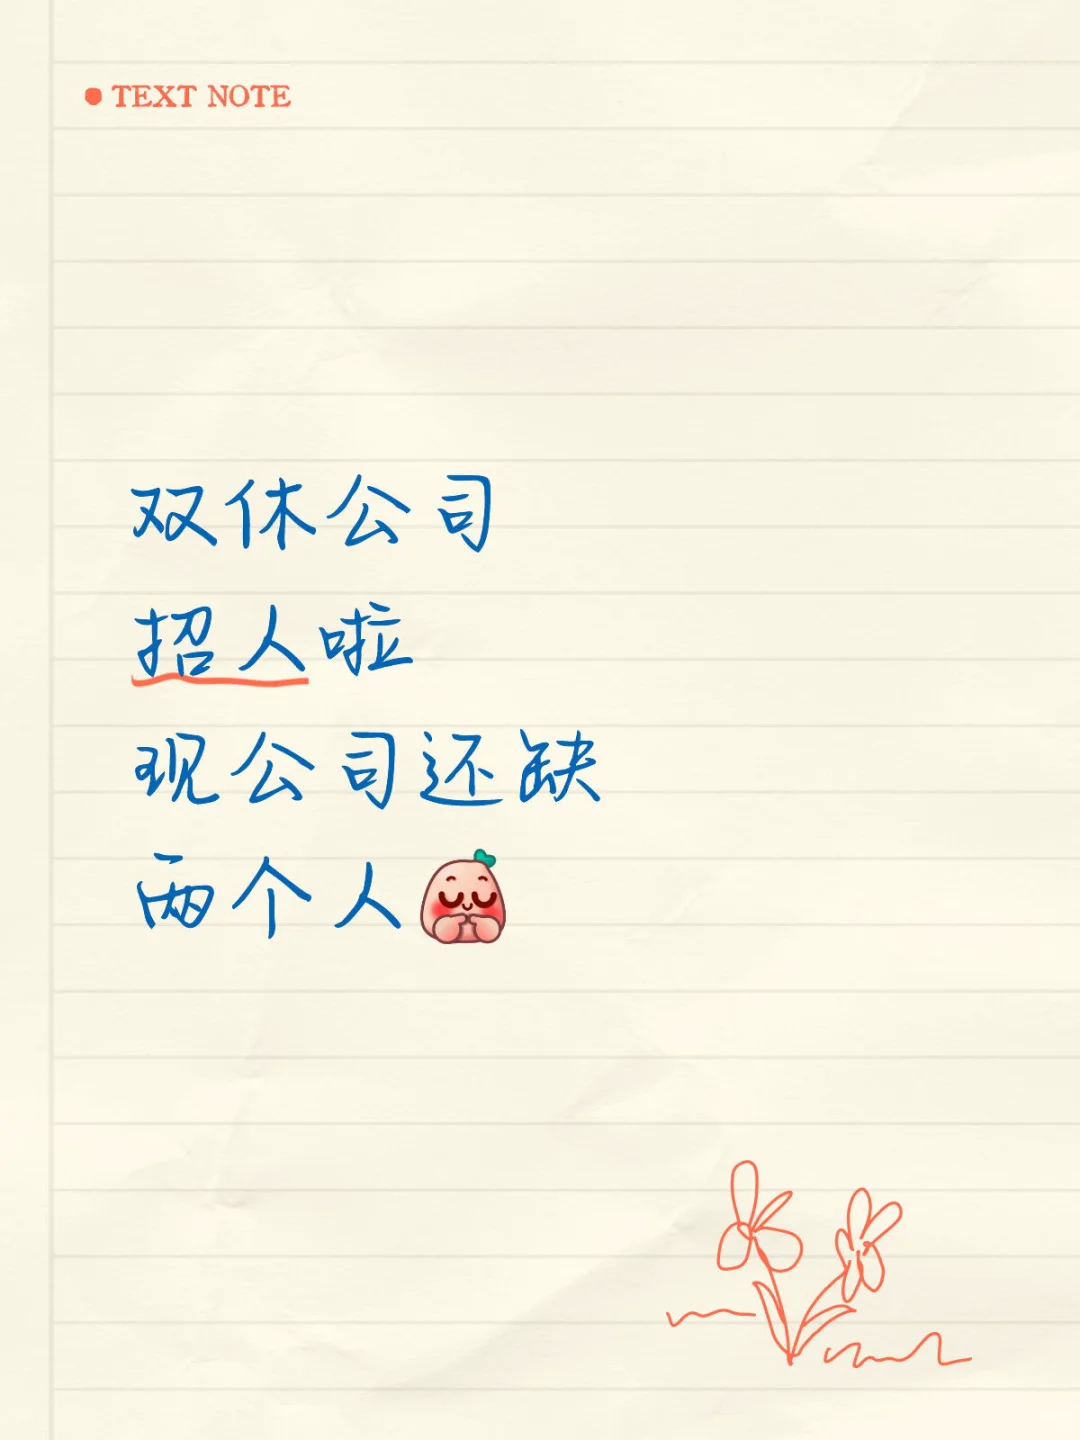 TEXT NOTE
双休公司
招人啦
现公司还缺
两个人